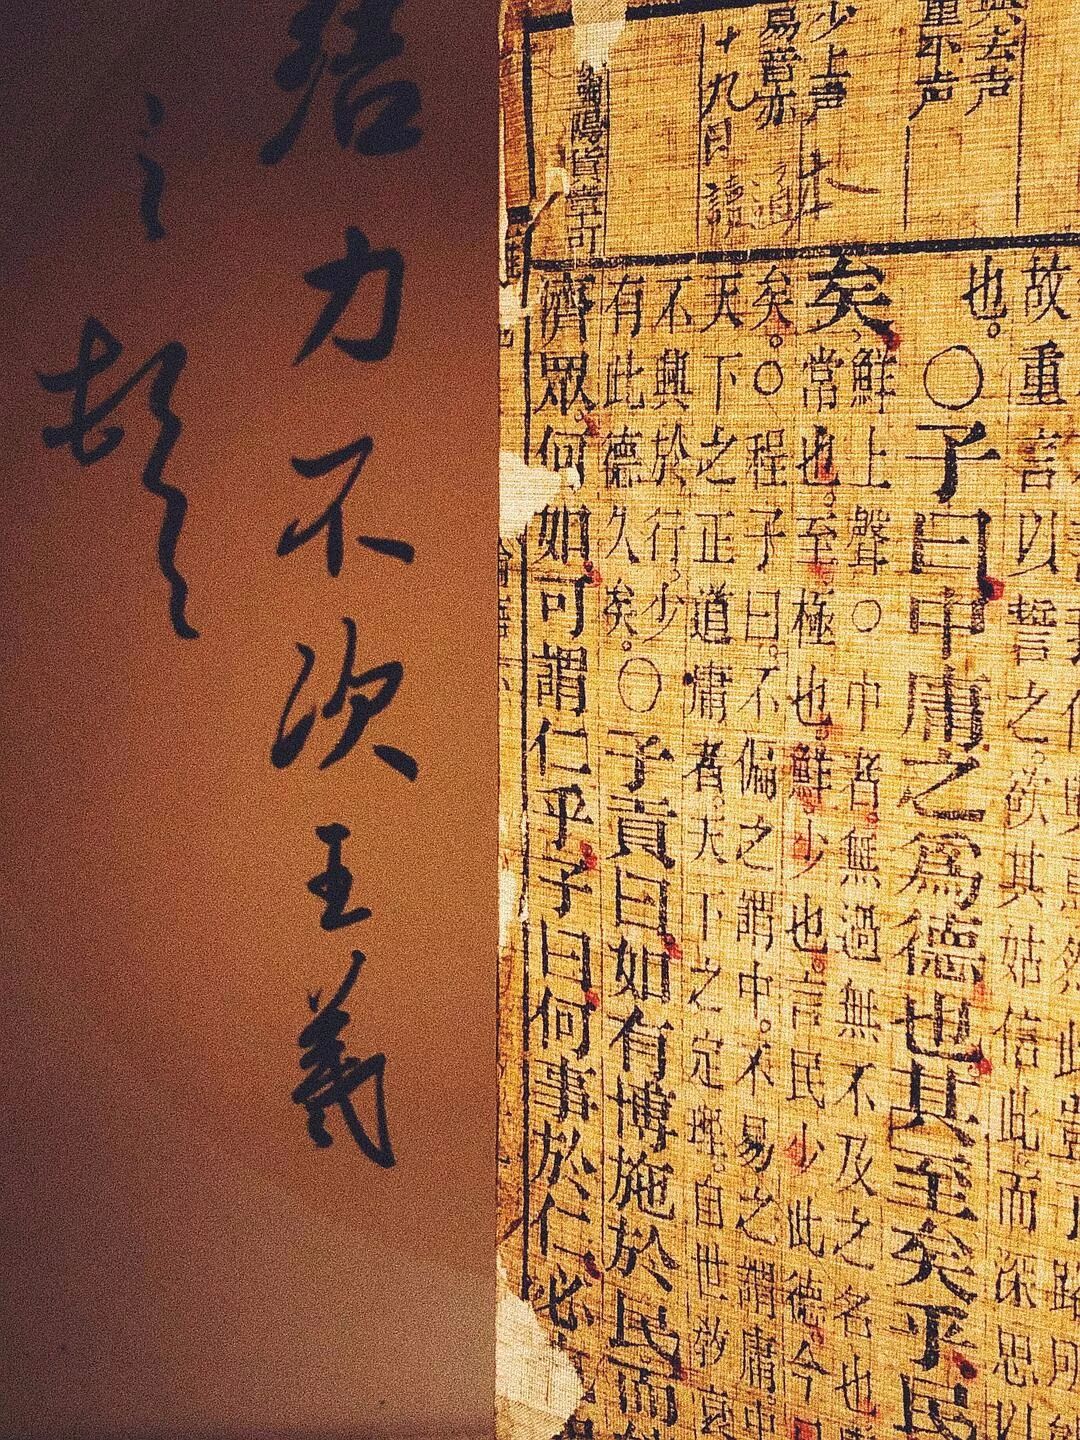 與去声
重平声
少上声
易音亦
十九日讀
陽貨章可
故重言以誓之。欲其姑信此。而深思以
也。○子曰中庸之爲德也其至矣乎民
矣
鮮上聲○中者。無過無不及之名也
常也。至極也。鮮少也。言民少此德。今
矣。○程子曰。不偏之謂中。不易之謂庸。中
天下之正道庸者。天下之定理。自世敎衰
不興於行。少
有此德久矣。○子貢曰如有博施於民而
濟眾何如可謂仁乎子曰何事於仁必
結力不次王羲
之頓首